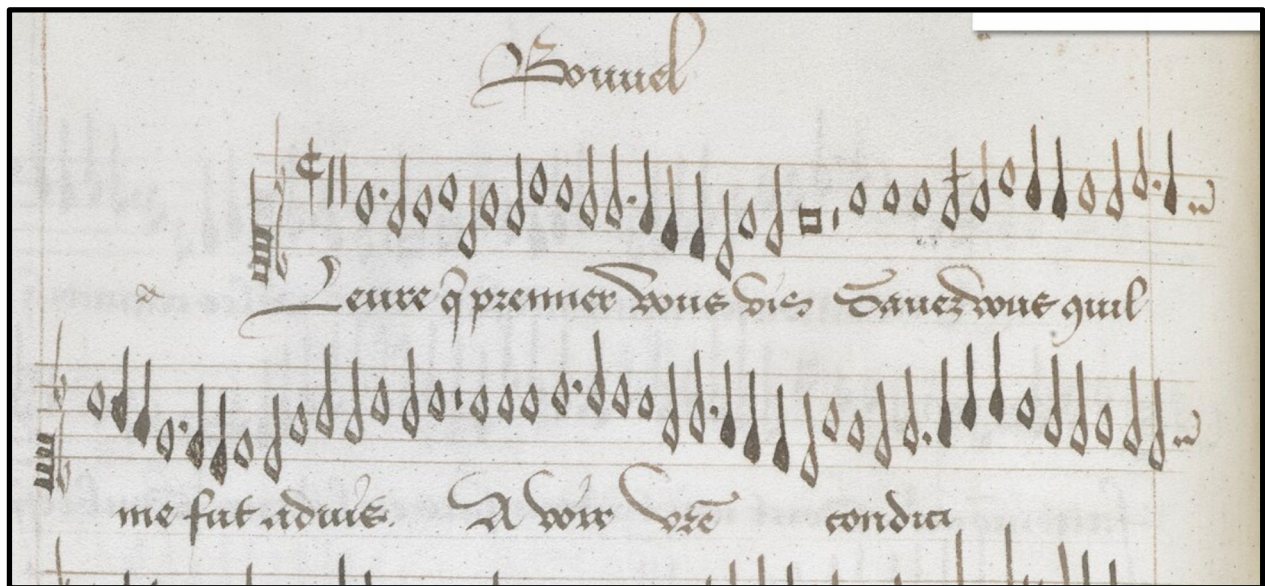 Bonnel
Leure q̄ premier vous vis Sauez vous quil
me fut aduis. A voir vr̄e condici